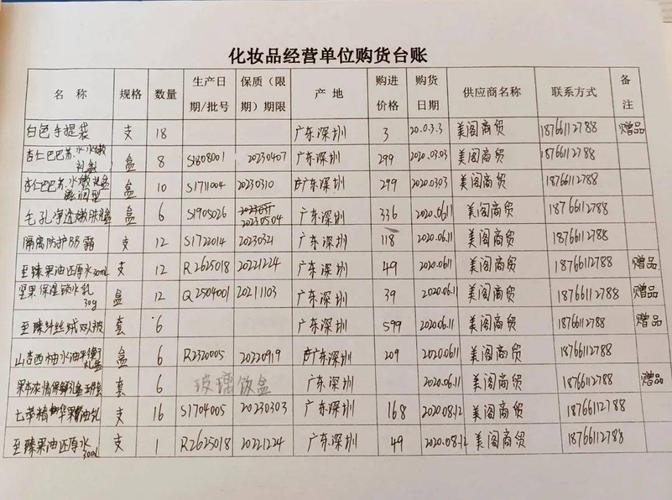 化妆品经营单位购货台账
名 称 规格 数量 生产日期/批号 保质(限期)期限 产 地 购进价格 购货日期 供应商名称 联系方式 备注
白色手提袋 支 18 广东深圳 3 20.0.3.3 美阁商贸 18766112788 赠品
杏仁巴巴苏水水嫩礼盒 盒 8 S1808001 20230407 广东深圳 299 2020.03.03 美阁商贸 18766112788
杏仁巴巴苏水嫩礼盒 盒 10 S1711004 20230310 广东深圳 299 2020.0303 美阁商贸 18766112788
毛孔净透嫩肤 盒 6 S1905026 20230504 广东深圳 336 2020.0611 美阁商贸 18766112788
隔离防护BB霜 支 12 S1722014 20230321 广东深圳 118 2020.0611 美阁商贸 18766112788
至臻果油还原水300ml 支 12 R2625018 20221224 广东深圳 49 2020.0611 美阁商贸 18766112788 赠品
坚果保湿 水乳30g 盒 12 Q2504001 20211103 广东深圳 39 2020.06.11 美阁商贸 18766112788 赠品
至臻 丝绒双人被 套 6 广东深圳 599 2020.06.11 美阁商贸 18766112788 赠品
山吉西柚水油 礼盒 盒 6 R2320005 20220919 广东深圳 209 2020.0611 美阁商贸 18766112788
果 浓情保鲜礼盒 套 6 玻璃饭盒 广东深圳 2020.06.11 美阁商贸 18766112788 赠品
七萃精华 油乳 支 16 S1704005 20230303 广东深圳 168 2020.08.12 美阁商贸 18766112788
至臻果油还原水300ml 支 1 R2625018 20221224 广东深圳 49 2020.08.12 美阁商贸 18766112788